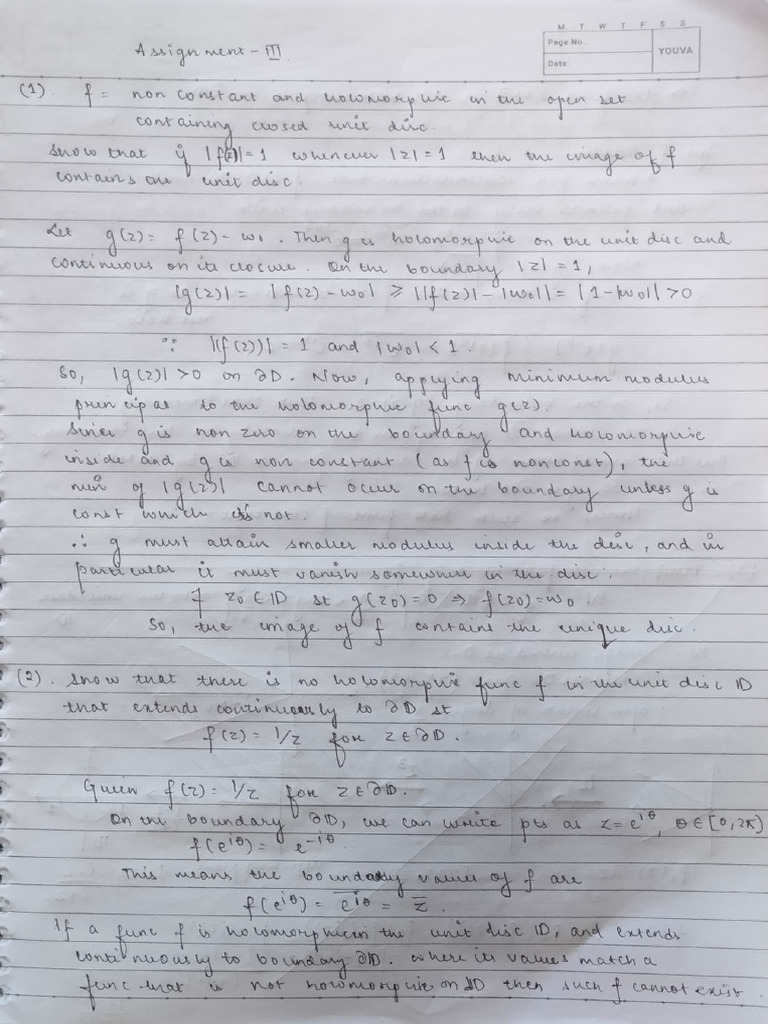 Assignment - III
M T W T F S S
Page No.
YOUVA
Date:
(1). f = non constant and holomorphic in the open set
containing closed unit disc.
Show that if |f(z)|=1 whenever |z|=1 then the image of f
contains the unit disc.
Let g(z) = f(z) - w₀. Then g is holomorphic on the unit disc and
continuous on its closure. On the boundary |z|=1,
|g(z)| = |f(z) - w₀| ⩾ ||f(z)| - |w₀|| = |1-|w₀|| >0
∵ |(f(z))| = 1 and |w₀| < 1.
So, |g(z)| >0 on ∂D. Now, applying minimum modulus
principal to the holomorphic func g(z).
Since g is non zero on the boundary and holomorphic
inside and g is non constant (as f is nonconst), the
min of |g(z)| cannot occur on the boundary unless g is
const which is not.
∴ g must attain smaller modulus inside the disc, and in
particular it must vanish somewhere in the disc.
∃ z₀ ∈ ID st g(z₀) = 0 ⇒ f(z₀) = w₀.
So, the image of f contains the unique disc.
(2). Show that there is no holomorphic func f in the unit disc ID
that extends continuously to ∂D st
f(z) = 1/z for z ∈ ∂D.
Given f(z) = 1/z for z ∈ ∂D.
On the boundary ∂D, we can write pts as z = e^{iθ}, θ ∈ [0, 2π)
f(e^{iθ}) = e^{-iθ}
This means the boundary values of f are
f(e^{iθ}) = \overline{e^{iθ}} = z̄.
If a func f is holomorphic in the unit disc ID, and extends
continuously to boundary ∂D. where its values match a
func that is not holomorphic on ID then such f cannot exist.